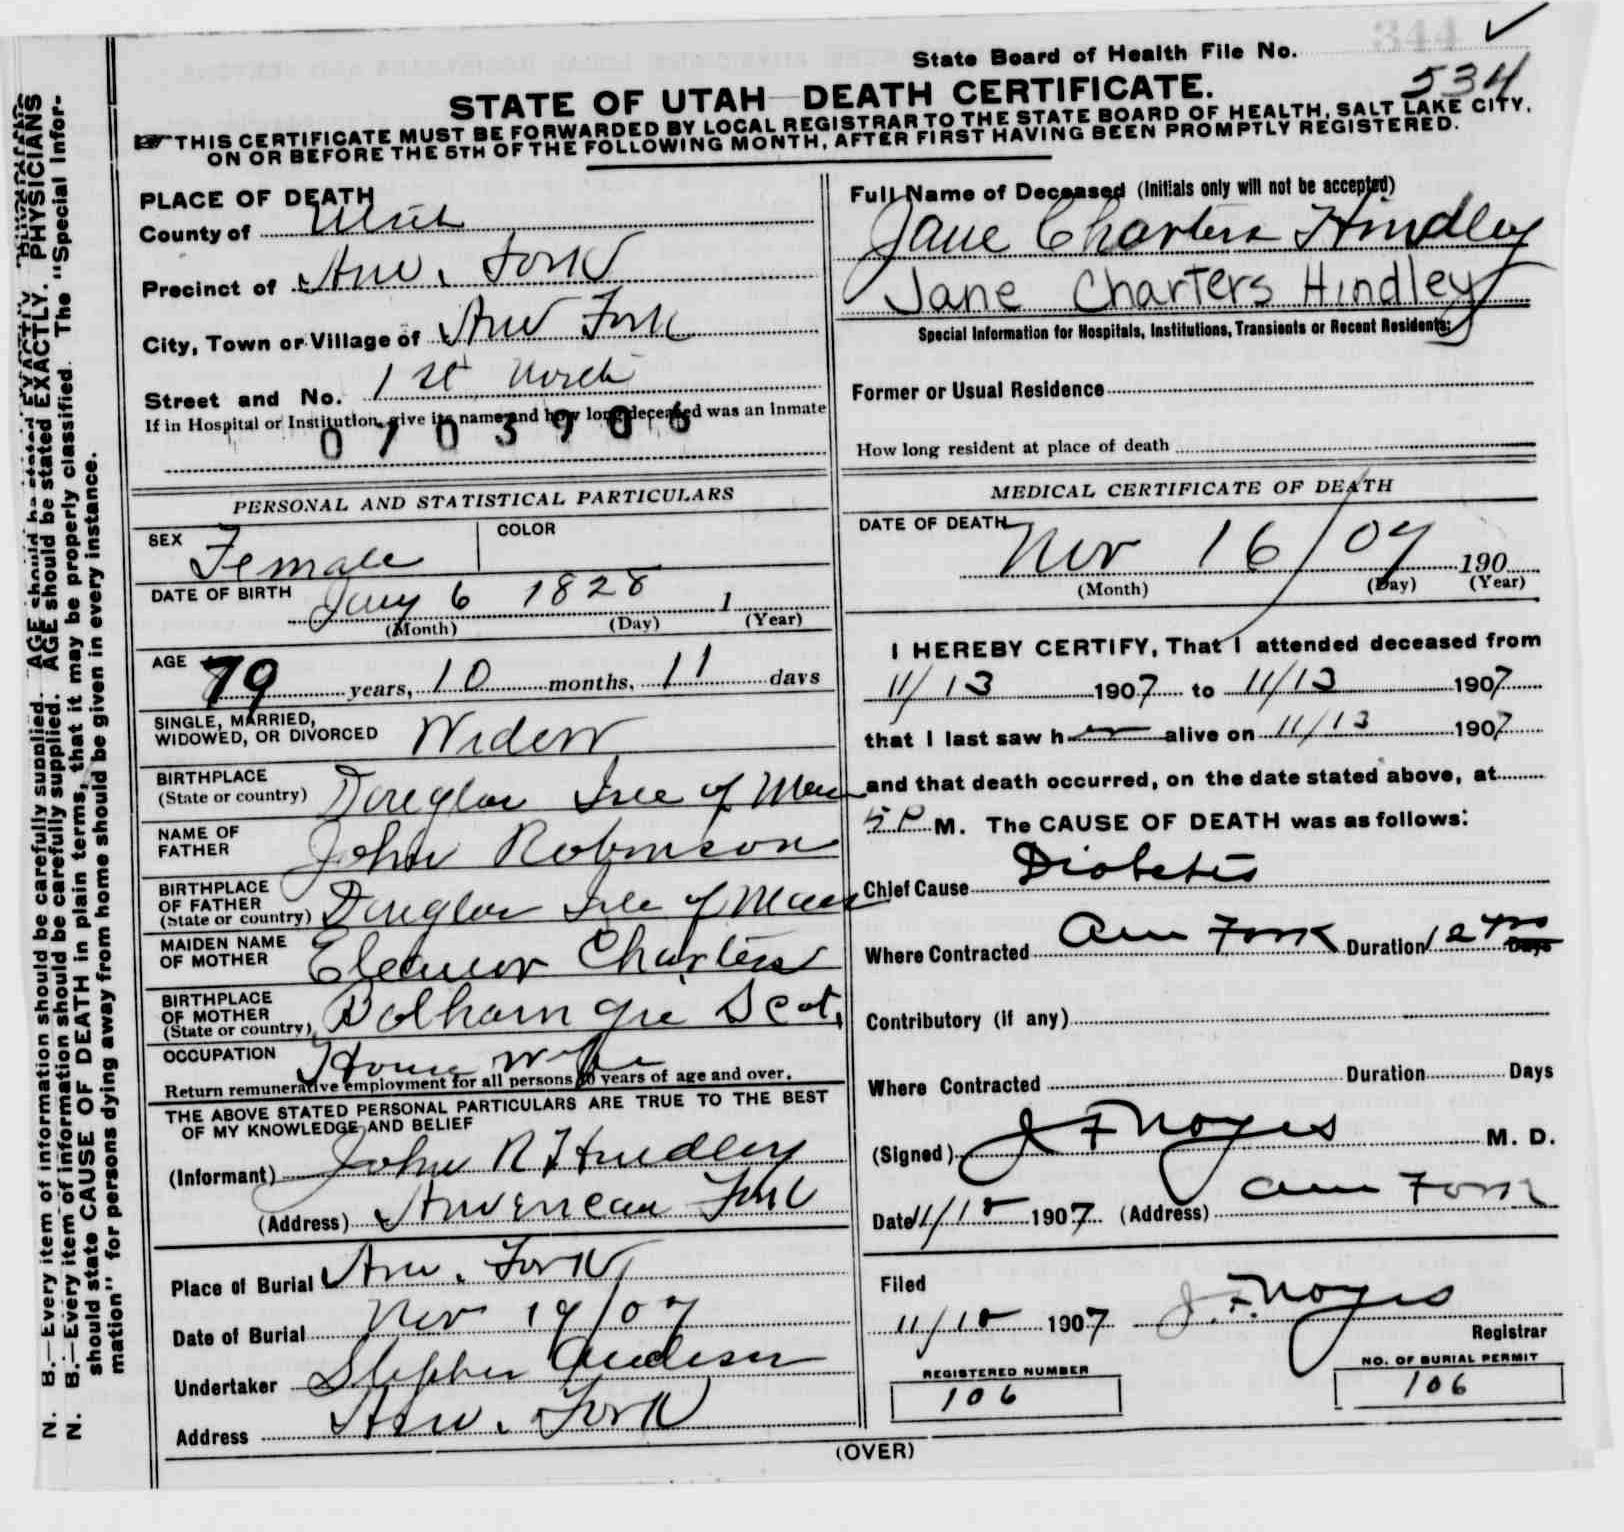 344
State Board of Health File No.
534
STATE OF UTAH DEATH CERTIFICATE.
THIS CERTIFICATE MUST BE FORWARDED BY LOCAL REGISTRAR TO THE STATE BOARD OF HEALTH, SALT LAKE CITY,
ON OR BEFORE THE 5TH OF THE FOLLOWING MONTH, AFTER FIRST HAVING BEEN PROMPTLY REGISTERED.
PLACE OF DEATH
County of Utah
Precinct of Am. Fork
City, Town or Village of Am Fork
Street and No. 1 st North
If in Hospital or Institution, give its name and how long deceased was an Inmate
0703906
PERSONAL AND STATISTICAL PARTICULARS
SEX Female COLOR
DATE OF BIRTH Jany 6 1828 1
(Month) (Day) (Year)
AGE 79 years, 10 months, 11 days
SINGLE, MARRIED,
WIDOWED, OR DIVORCED Widow
BIRTHPLACE
(State or country) Douglas Isle of Man
NAME OF
FATHER John Robinson
BIRTHPLACE
OF FATHER
(State or country) Douglas Isle of Man
MAIDEN NAME
OF MOTHER Eleanor Charters
BIRTHPLACE
OF MOTHER
(State or country) Scot.
OCCUPATION House Wife
Return remunerative employment for all persons 10 years of age and over.
THE ABOVE STATED PERSONAL PARTICULARS ARE TRUE TO THE BEST
OF MY KNOWLEDGE AND BELIEF
(Informant) John R Hindley
(Address) American Fork
Place of Burial Am. Fork
Date of Burial Nov 19/07
Undertaker Stephen Anderson
Address Am. Fork
Full Name of Deceased (Initials only will not be accepted)
Jane Charters Hindley
Jane Charters Hindley
Special Information for Hospitals, Institutions, Transients or Recent Residents:
Former or Usual Residence
How long resident at place of death
MEDICAL CERTIFICATE OF DEATH
DATE OF DEATH
Nov 16/07 190
(Month) (Day) (Year)
I HEREBY CERTIFY, That I attended deceased from
11/13 1907 to 11/13 1907
that I last saw her alive on 11/13 1907
and that death occurred, on the date stated above, at
5 P M. The CAUSE OF DEATH was as follows:
Chief Cause Diabetes
Where Contracted Am Fork Duration 12 yrs Days
Contributory (if any)
Where Contracted Duration Days
(Signed) J F Noyes M. D.
Date 11/18 1907 (Address) Am Fork
Filed
11/18 1907 J. F. Noyes
Registrar
REGISTERED NUMBER
106
NO. OF BURIAL PERMIT
106
(OVER)
N. B.—Every item of information should be carefully supplied. AGE should be stated EXACTLY. PHYSICIANS
N. B.—Every item of information should be carefully supplied. AGE should be stated EXACTLY. PHYSICIANS
should state CAUSE OF DEATH in plain terms, that it may be properly classified. The "Special Infor-
mation" for persons dying away from home should be given in every instance.